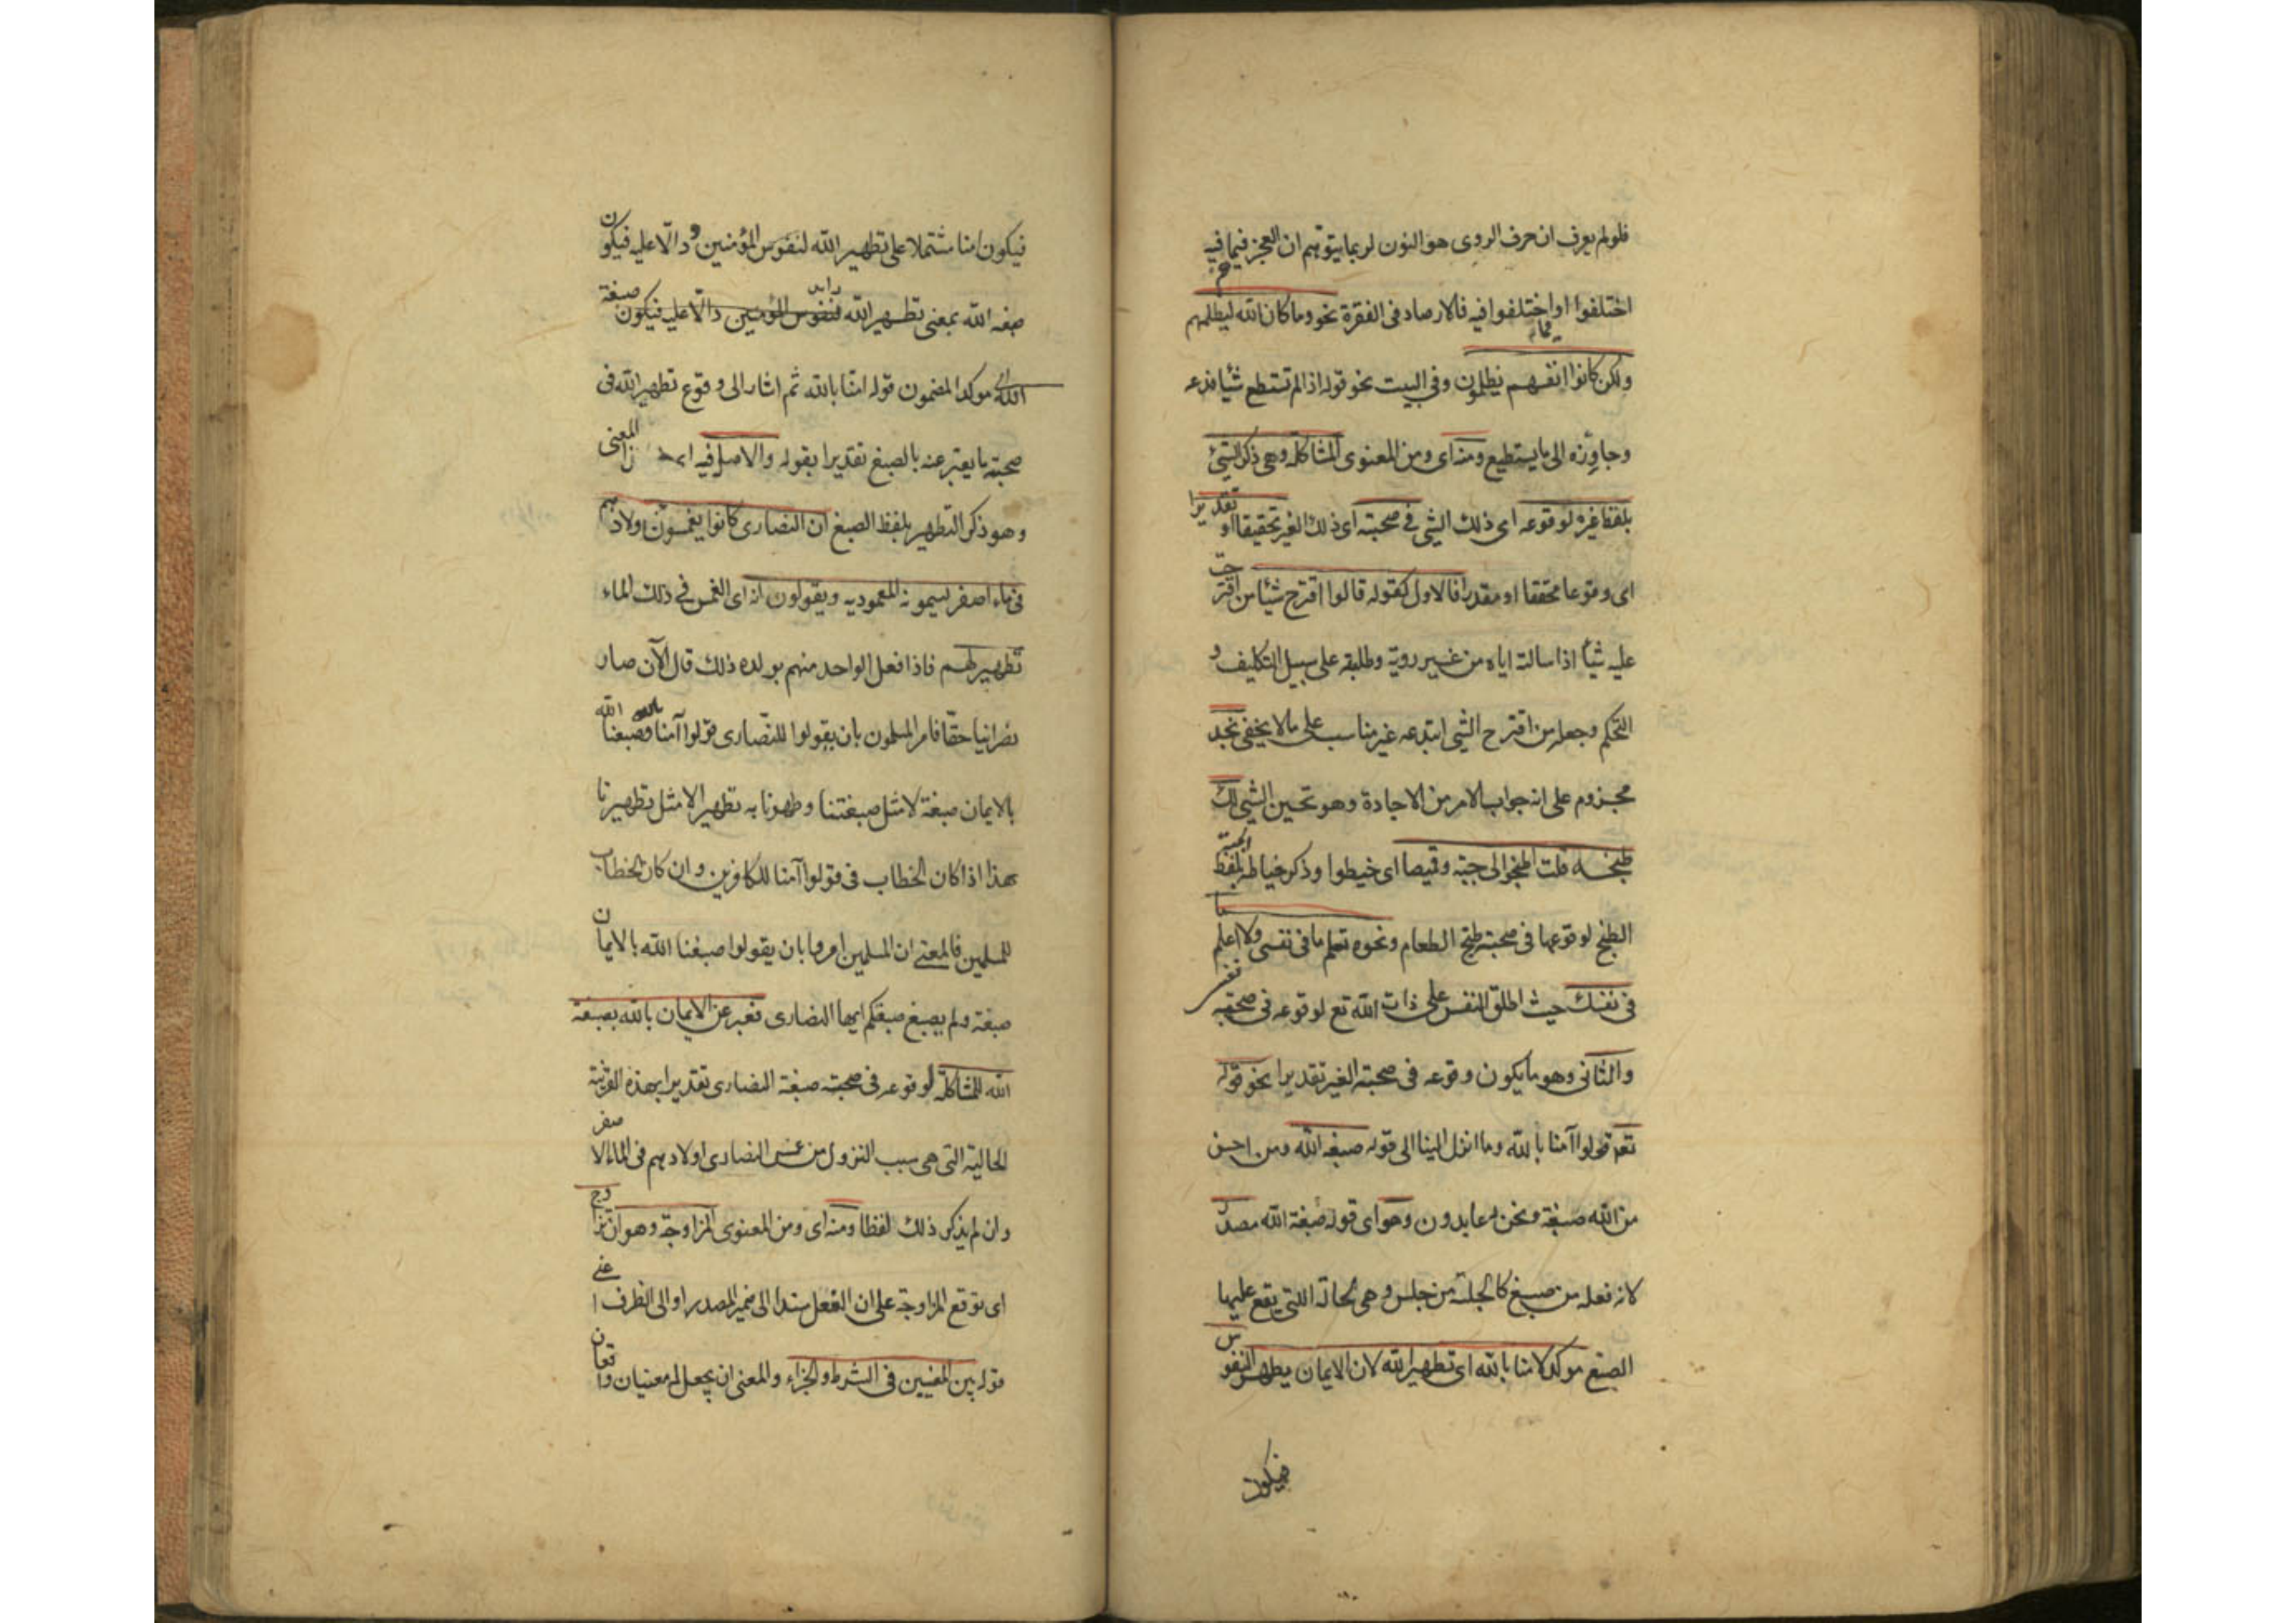 فلو لم يعرف ان حرف الروى هو النون لربما يتوهم ان العجز فيما فيه
اختلفوا او اختلفوا فيه فالارصاد فى الفقرة نحو وما كان الله ليظلمهم
ولكن كانوا انفسهم يظلمون وفى البيت نحو قوله اذا لم تستطع شيئا فدعه
وجاوزه الى ما يستطيع ومنه اى ومن المعنوى المشاكلة وهى ذكر الشئ
بلفظ غيره لوقوعه اى ذلك الشئ فى صحبته اى ذلك الغير تحقيقا او تقديرا
اى وقوعا محققا او مقدرا فالاول كقوله قالوا اقترح شيئا من اقترحت
عليه شيئا اذا سالته اياه من غير روية وطلبته على سبيل التكليف و
التحكم وجعله من اقترح الشئ ابتدعه غير مناسب على ما لا يخفى نجد
مجزوم على انه جواب الامر من الاجادة وهو تحسين الشئ لك
طبخه قلت اطبخوا لى جبة وقميصا اى خيطوا وذكر خياطة الجبة بلفظ
الطبخ لوقوعها فى صحبة طبخ الطعام ونحوه تعلم ما فى نفسى ولا اعلم ما
فى نفسك حيث اطلق النفس على ذات الله تع لوقوعه فى صحبة نفسى
والثانى وهو ما يكون وقوعه فى صحبة الغير تقديرا نحو قوله
تعم قولوا آمنا بالله وما انزل الينا الى قوله صبغة الله ومن احسن
من الله صبغة ونحن له عابدون وهو اى قوله صبغة الله مصدر
لانه فعلة من صبغ كالجلسة من جلس وهى الحالة اللتى يقع عليها
الصبغ موكد لامنا بالله اى تطهير الله لان الايمان يطهر النفوس
فيكون
فيكون امنا مشتملا على تطهير الله لنفوس المؤمنين و دالا عليه فيكون
صبغة الله بمعنى تطهير الله لنفوس المؤمنين دالا عليه فيكون صبغة
الله موكدا لمضمون قوله امنا بالله ثم اشار الى وقوع تطهير الله فى
صحبة ما يعبر عنه بالصبغ تقديرا بقوله والاصل فيه اى المعنى
وهو ذكر التطهير بلفظ الصبغ ان النصارى كانوا يغمسون اولادهم
فى ماء اصفر يسمونه المعموديه ويقولون انه اى الغمس فى ذلك الماء
تطهير لهم فاذا فعل الواحد منهم بولده ذلك قال الآن صار
نصرانيا حقا فامر المسلمون بان يقولوا للنصارى قولوا آمنا بالله وصبغنا الله
بالايمان صبغة لا مثل صبغتنا وطهرنا به تطهيرا لا مثل تطهيرنا
هذا اذا كان الخطاب فى قولوا آمنا للكافرين وان كان الخطاب
للمسلمين فالمعنى ان المسلمين امروا بان يقولوا صبغنا الله بالايمان
صبغة ولم يصبغ صبغتكم ايها النصارى فعبر عن الايمان بالله بصبغة
الله للمشاكلة لوقوعه فى صحبة صبغة النصارى تقديرا بهذه القرينة
الحالية التى هى سبب النزول من غمس النصارى اولادهم فى الماء الاصفر
وان لم يذكر ذلك لفظا ومنه اى ومن المعنوى المزاوجة وهو ان تزاوج
اى توقع المزاوجة على ان الفعل مسند الى ضمير المصدر او الى الظرف اعنى
قوله بين المعنيين فى الشرط والجزاء والمعنى ان يجعل المعنيان واقعان